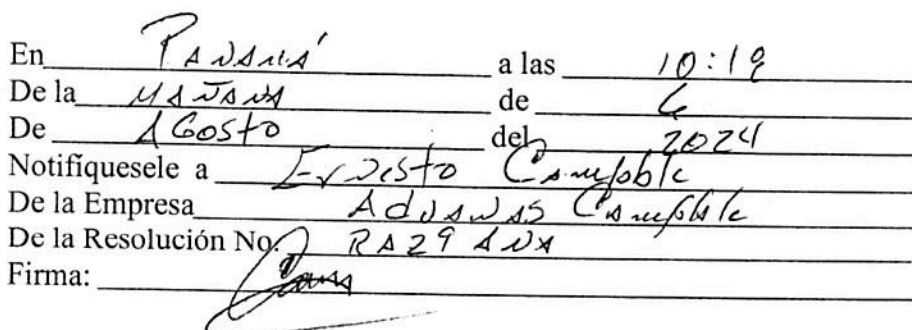 En Panamá a las 10:19
De la MAÑANA de 6
De AGosto del 2024
Notifíquesele a Ernesto
De la Empresa Aduanas
De la Resolución No. RA29 ANA
Firma: